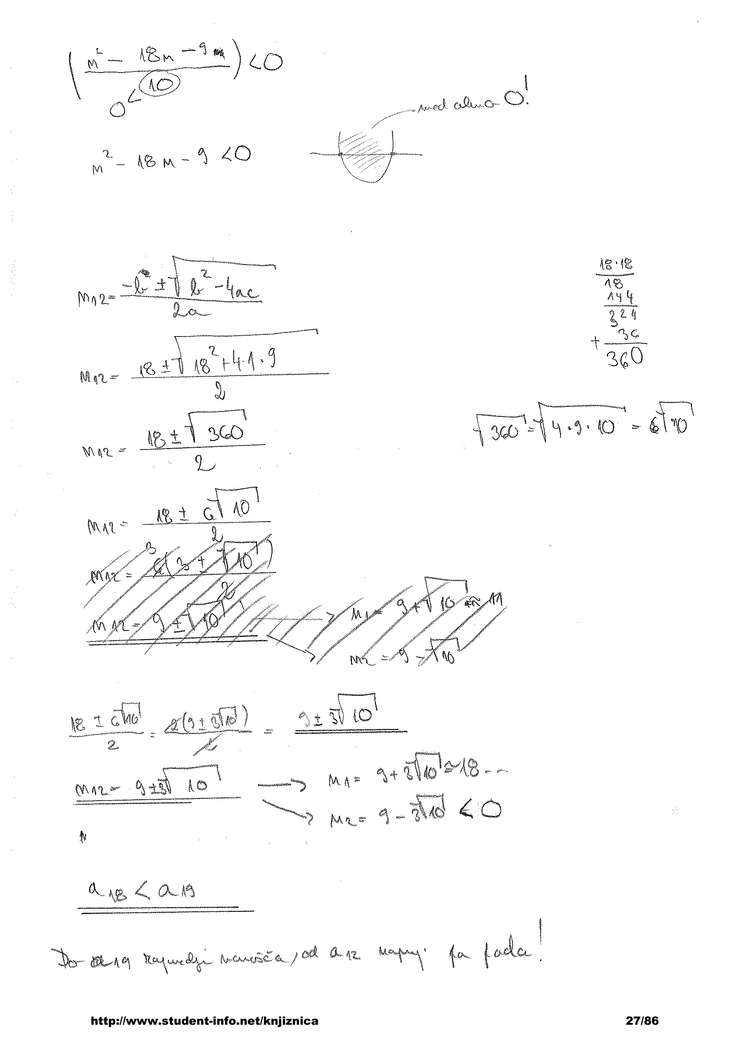 (m² - 18m - 9 / 10) < 0
0 <
med obema 0!
m² - 18m - 9 < 0
m12 = (-b ± √(b² - 4ac)) / 2a
18·18
18
144
324
+ 36
360
m12 = (18 ± √(18² + 4·1·9)) / 2
m12 = (18 ± √360) / 2
√360 = √(4·9·10) = 6√10
m12 = (18 ± 6√10) / 2
m12 = 6(3 ± √10) / 2
m12 = 9 ± √10
m1 = 9 + √10 ≈ 11
m2 = 9 - √10
(18 ± 6√10) / 2 = 2(9 ± 3√10) / 2 = 9 ± 3√10
m12 = 9 ± 3√10 → m1 = 9 + 3√10 ≈ 18 ...
→ m2 = 9 - 3√10 < 0
a18 < a19
Do a19 narašča, od a12 naprej pa pada!
http://www.student-info.net/knjiznica 27/86